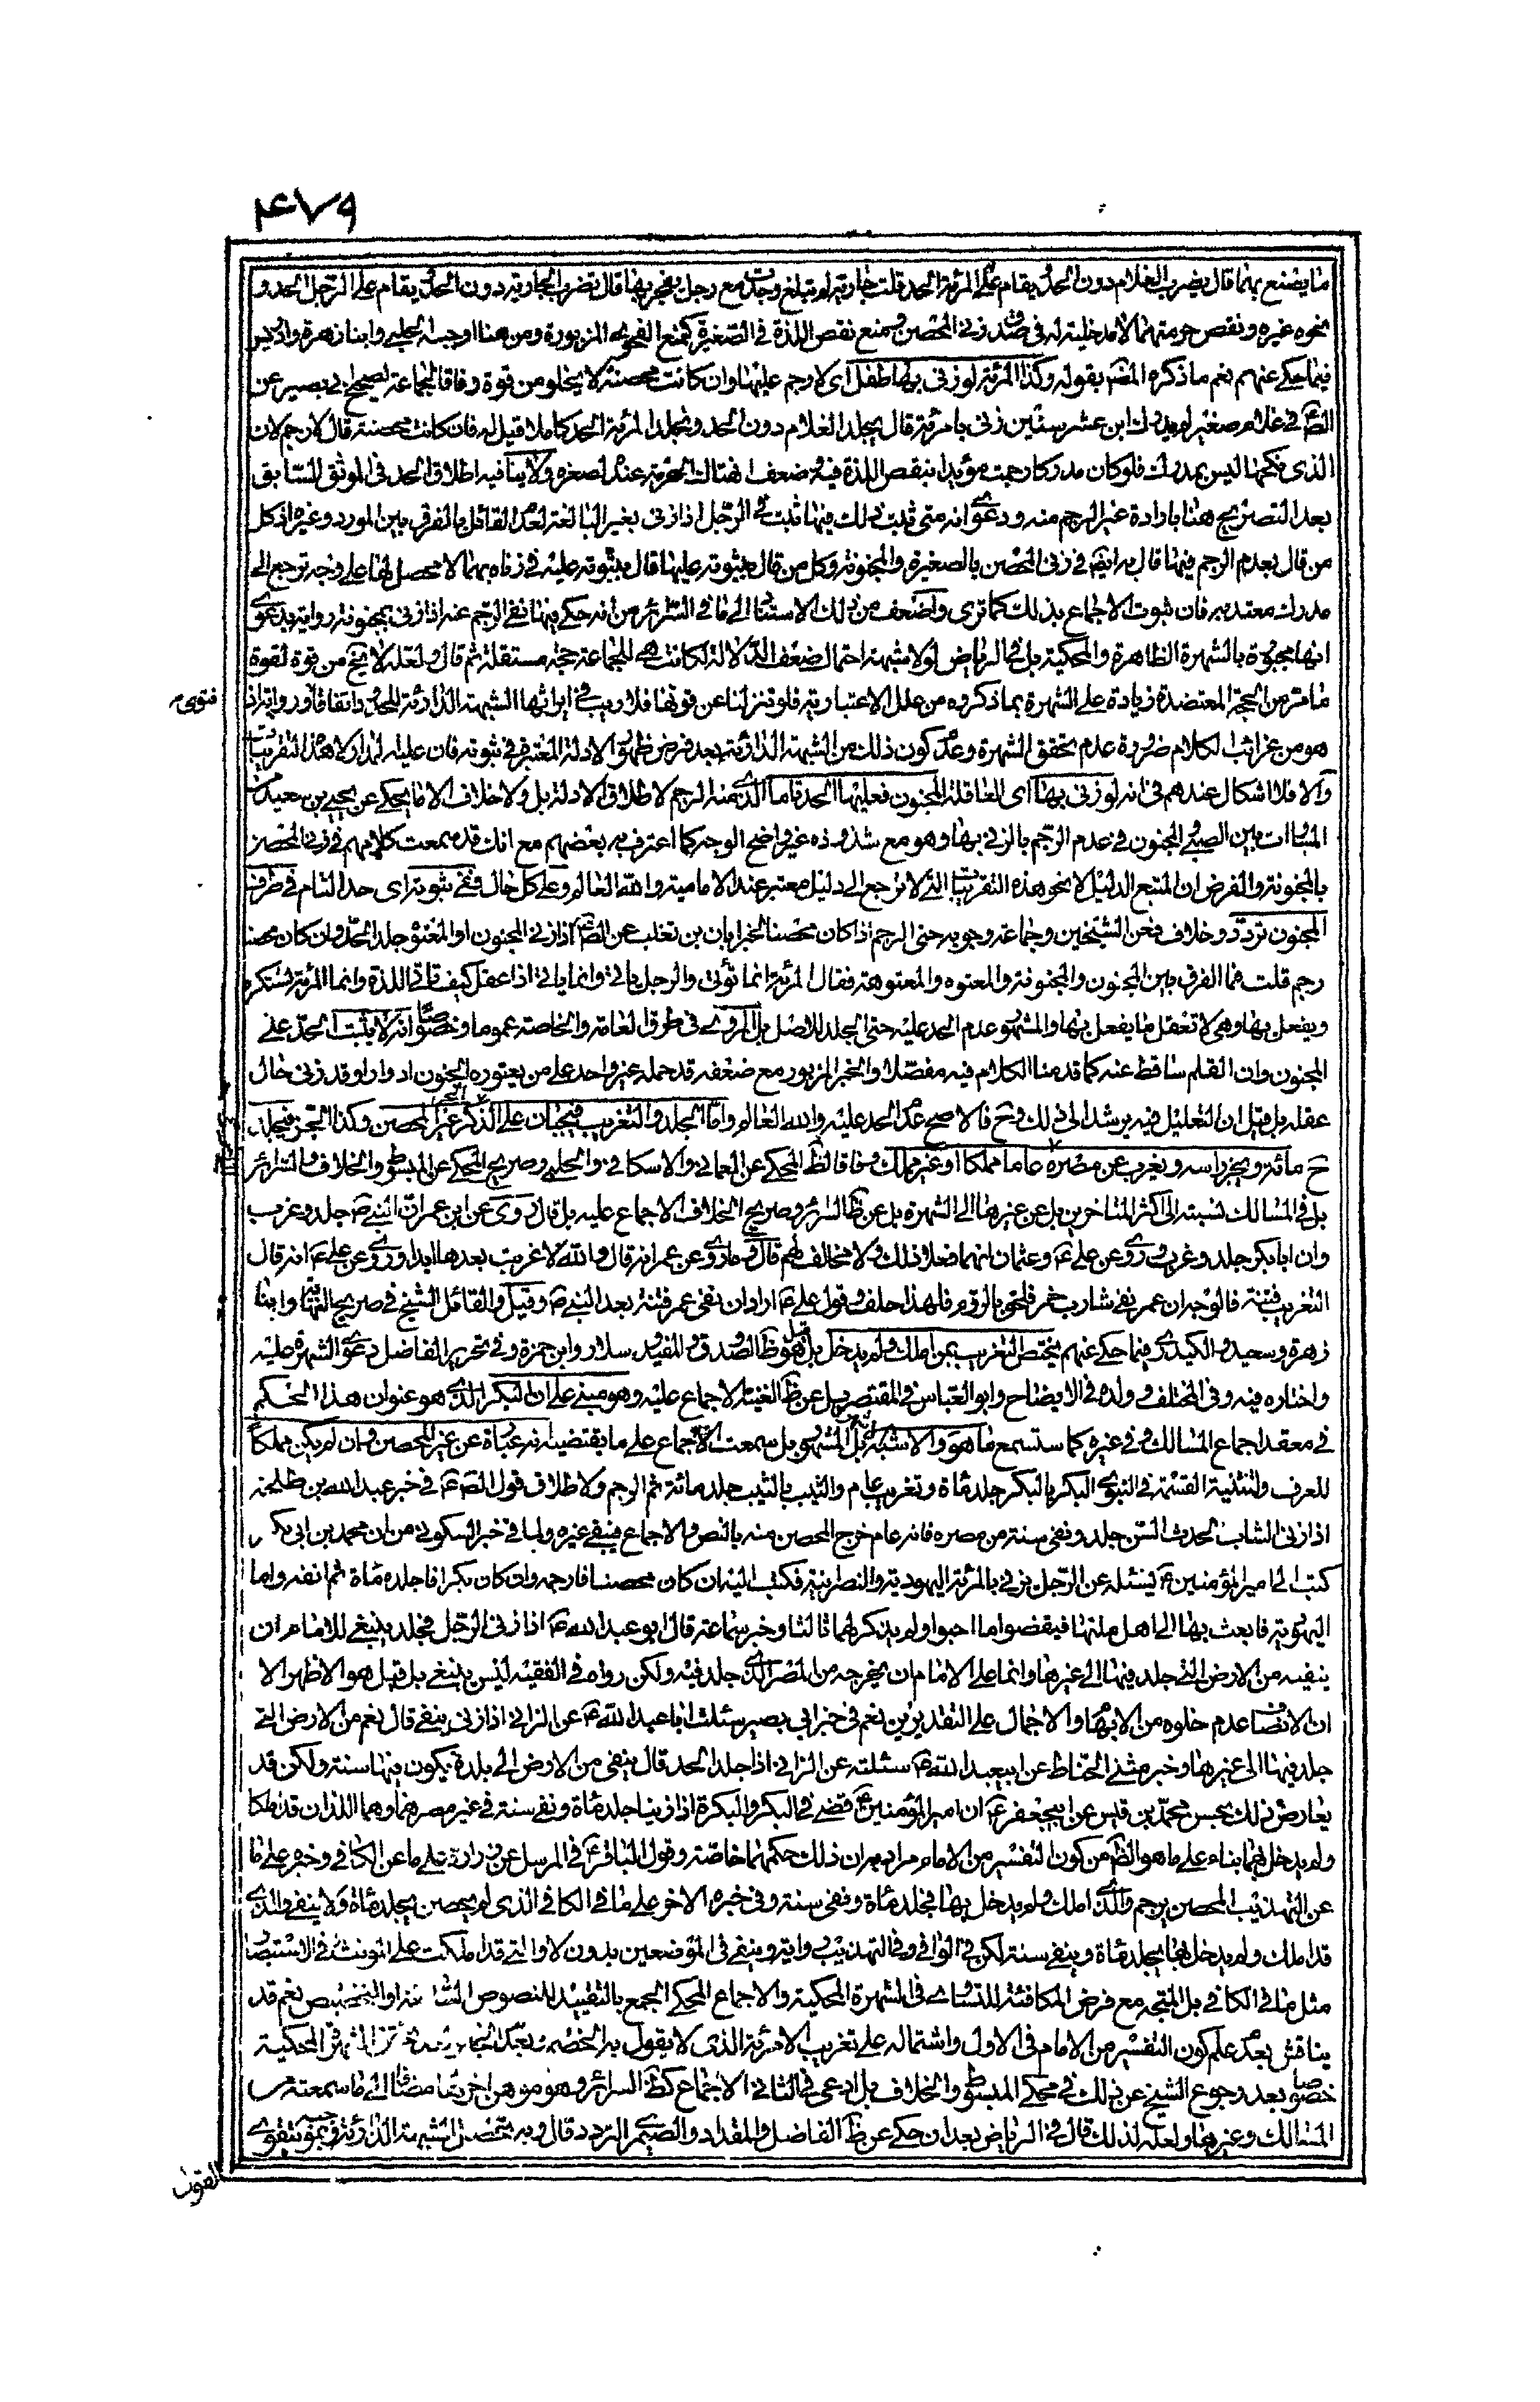 ۴۷۹
ما يصنع بهما قال يضرب الغلام دون الحد ويقام على المرئة الحد قلت جارية لم تبلغ وجدت مع رجل يفجر بها قال تضرب الجارية دون الحد ويقام على الرجل الحد و
نحوه غيره ونقص حرمتهما لا مدخلية له في صدق زنى المحصن ومنع نقص اللذة في الصغيرة كمنع الفحوى المزبورة ومن هنا اوجبه الحلبي وابنا زهرة وادريس
فيما حكي عنهم نعم ما ذكره المصنف بقوله وكذا المرئة لو زنى بها طفل اى لا رجم عليها وان كانت محصنة لا يخلو من قوة وفاقا لجماعة لصحيح ابي بصير عن
الصادق في غلام صغير لم يدرك ابن عشر سنين زنى بامرئة قال يجلد الغلام دون الحد وتجلد المرئة الحد كاملا قيل له فان كانت محصنة قال لا ترجم لان
الذى نكحها ليس بمدرك فلو كان مدركا رجمت مؤيدا بنقص اللذة فيه وضعف انتهاك الحرمة عنده لصغره ولا ينافيه اطلاق الحد في الموثق السابق
بعد التصريح هنا بارادة غير الرجم منه ودعوى انه متى ثبت ذلك فيها ثبت في الرجل اذا زنى بغير البالغة لعدم القائل بالفرق بين المورد وغيره اذ كل
من قال بعدم الرجم فيها قال به ايضا في زنى المحصن بالصغيرة والمجنونة وكل من قال بثبوته عليها قال بثبوته عليه في زناه بهما لا محصل لها على وجه ترجع الى
مدرك معتد به فان ثبوت الاجماع بذلك كما ترى واضعف من ذلك الاستناد الى ما في السرائر من انه حكي فيها نفي الرجم عنه اذا زنى بمجنونة رواية بدعوى
انها مجبورة بالشهرة الظاهرة والمحكية بل في الرياض لولا شبهة احتمال ضعف الدلالة لكانت هي للجماعة حجة مستقلة ثم قال ولعله لا يخ من قوة لقوة
ما مر من الحجة المعتضدة زيادة على الشهرة بما ذكروه من علل الاعتبارية فلو تنزلنا عن قوتها فلا ريب في ايراثها الشبهة الدارئة للحدود اتفاقا ورواية اذ
فتوى م
هو من غرائب الكلام ضرورة عدم تحقق الشهرة وعدم كون ذلك من الشبهة الدارئة بعد فرض ظهور الادلة المعتبرة في ثبوته فان عليه المدار لا هذه التقريبات
والا فلا اشكال عندهم في انه لو زنى بها اى العاقلة المجنون فعليها الحد تاما الذى منه الرجم لاطلاق الادلة بل ولا خلاف الا ما يحكى عن يحيى بن سعيد من
المساوات بين الصبي والمجنون في عدم الرجم بالزنى بها وهو مع شذوذه غير واضح الوجه كما اعترف به بعضهم مع انك قد سمعت كلامهم في زنى المحصن
بالمجنونة والفرض ان المتبع الدليل لا نحو هذه التقريبات التي لا ترجع الى دليل معتبر عند الامامية والله العالم وعلى كل حال ففي ثبوته اى حد التام في طرف
المجنون تردد وخلاف فعن الشيخين وجماعة وجوبه حتى الرجم اذا كان محصنا لخبر ابان بن تغلب عن الصادق اذا زنى المجنون او المعتوه جلد الحد وان كان محصنا
رجم قلت فما الفرق بين المجنون والمجنونة والمعتوه والمعتوهة فقال المرئة انما تؤتى والرجل ياتي وانما ياتي اذا عقل كيف ياتي اللذة وانما المرئة تستكره
ويفعل بها وهي لا تعقل ما يفعل بها والمشهور عدم الحد عليه حتى الجلد للاصل بل المروى في طرق العامة والخاصة عموما وخصوصا انه لا يثبت الحد على
المجنون وان القلم ساقط عنه كما قدمنا الكلام فيه مفصلا والخبر المزبور مع ضعفه قد حمله غير واحد على من يعتوره الجنون ادوارا وقد زنى حال
عقله بل قيل ان التعليل فيه يرشد الى ذلك وح فالاصح عدم الحد عليه والله العالم واما الجلد والتغريب فيجبان على الذكر الحر غير المحصن وكذا الجز فيجلد
ح مائة ويجز راسه ويغرب عن مصره عاما مملكا او غير مملك وفاقا لظ المحكي عن العماني والاسكافي والحلبي وصريح المحكي عن المبسوط والخلاف والسرائر
بل في المسالك نسبته الى اكثر المتاخرين بل عن غيرها الى الشهرة بل عن ظ السرائر وصريح الخلاف الاجماع عليه بل قال روى عن ابن عمر ان النبي ص جلد وغرب
وان ابا بكر جلد وغرب وروى عن علي ع وعثمان انهما فعلا ذلك ولا مخالف لهم قال وما روى عن عمر انه قال والله لا غربت بعدها ابدا وروى عن علي ع انه قال
التغريب فتنة فالوجه ان عمر نفى شارب خمر فلحق بالروم فلهذا حلف وقول علي ع اراد ان نفي عمر فتنة بعد النبي ص وقيل والقائل الشيخ في صريح النهاية وابنا
زهرة وسعيد والكيدرى فيما حكي عنهم يختص التغريب بمن املك ولم يدخل بل هو ظ الصدوق والمفيد وسلار وابن حمزة وفي تحرير الفاضل دعوى الشهرة عليه
واختاره فيه وفي المختلف وولده في الايضاح وابو العباس في المقتصر بل عن ظ الغنية الاجماع عليه وهو مبني على ان البكر الذى هو عنوان هذا الحكم
في معقد اجماع المسالك وفي غيره كما ستسمع ما هو والاشبه بل المشهور بل سمعت الاجماع على ما يقتضيه انه عبارة عن غير المحصن وان لم يكن مملكا
للعرف والتثنية القسمة في النبوى البكر بالبكر جلد مائة وتغريب عام والثيب بالثيب جلد مائة ثم الرجم ولاطلاق قول الصادق ع في خبر عبد الله بن طلحة
اذا زنى الشاب الحدث السن جلد ونفي سنة من مصره فانه عام خرج المحصن منه بالنص والاجماع فيبقى غيره ولما في خبر السكوني من ان محمد بن ابي بكر
كتب الى امير المؤمنين ع يسئله عن الرجل يزني بالمرئة اليهودية والنصرانية فكتب اليه ان كان محصنا فارجمه وان كان بكرا فاجلده مائة ثم انفه واما
اليهودية فابعث بها الى اهل ملتها فيقضوا ما احبوا ولم يذكر لهما ثالثا وخبر سماعة قال ابو عبد الله ع اذا زنى الرجل فجلد ينبغي للامام ان
ينفيه من الارض التي جلد فيها الى غيرها وانما على الامام ان يخرجه من المصر الذى جلد فيه ولكن رواه في الفقيه ليس ينبغي بل قيل هو الاظهر الا
ان الانصاف عدم خلوه من الابهام والاجمال على التقديرين نعم في خبر ابي بصير سئلت ابا عبد الله ع عن الزاني اذا زنى ينفى قال نعم من الارض التي
جلد فيها الى غيرها وخبر مثنى الحناط عن ابيعبد الله ع سئلته عن الزاني اذا جلد الحد قال ينفى من الارض الى بلدة يكون فيها سنة ولكن قد
يعارض ذلك بحسن محمد بن قيس عن ابيجعفر ع ان امير المؤمنين ع قضى في البكر والبكرة اذا زنيا جلد مائة ونفي سنة في غير مصرهما وهما اللذان قد ملكا
ولم يدخل بها بناء على ما هو الظ من كون التفسير من الامام مرادا به ان ذلك حكمهما خاصة وقول الباقر ع في المرسل عن زرارة على ما عن الكافي وخبره على ما
عن التهذيب المحصن يرجم والذى املك ولم يدخل بها فجلد مائة ونفي سنة وفي خبره الاخر على ما في الكافي الذى لم يحصن يجلد مائة ولا ينفى والذى
قد املك ولم يدخل بها يجلد مائة وينفى سنة لكن في الوافي وفي التهذيب رواية وينفى في الموضعين بدون لا والتي قد املكت على التونيث في الاستبصار
مثل ما في الكافي بل المتجه مع فرض المكافئة للتساوى في الشهرة المحكية والاجماع المحكي الجمع بالتقييد للنصوص او التخصيص نعم قد
يناقش بعدم علم كون التفسير من الامام في الاول واشتماله على تغريب الامرئة الذى لا يقول به الخصم المحكية
خصوصا بعد رجوع الشيخ عن ذلك في محكي المبسوط والخلاف بل ادعى في الثاني الاجماع كظ السرائر وهو موهن اخر لها مضافا الى ما سمعته من
المسالك وغيرها ولعله لذلك قال في الرياض بعد ان حكي عن ظ الفاضل والمقداد والصيمرى التردد قال وبه تحصل الشبهة الدارئة فيقوى
القول